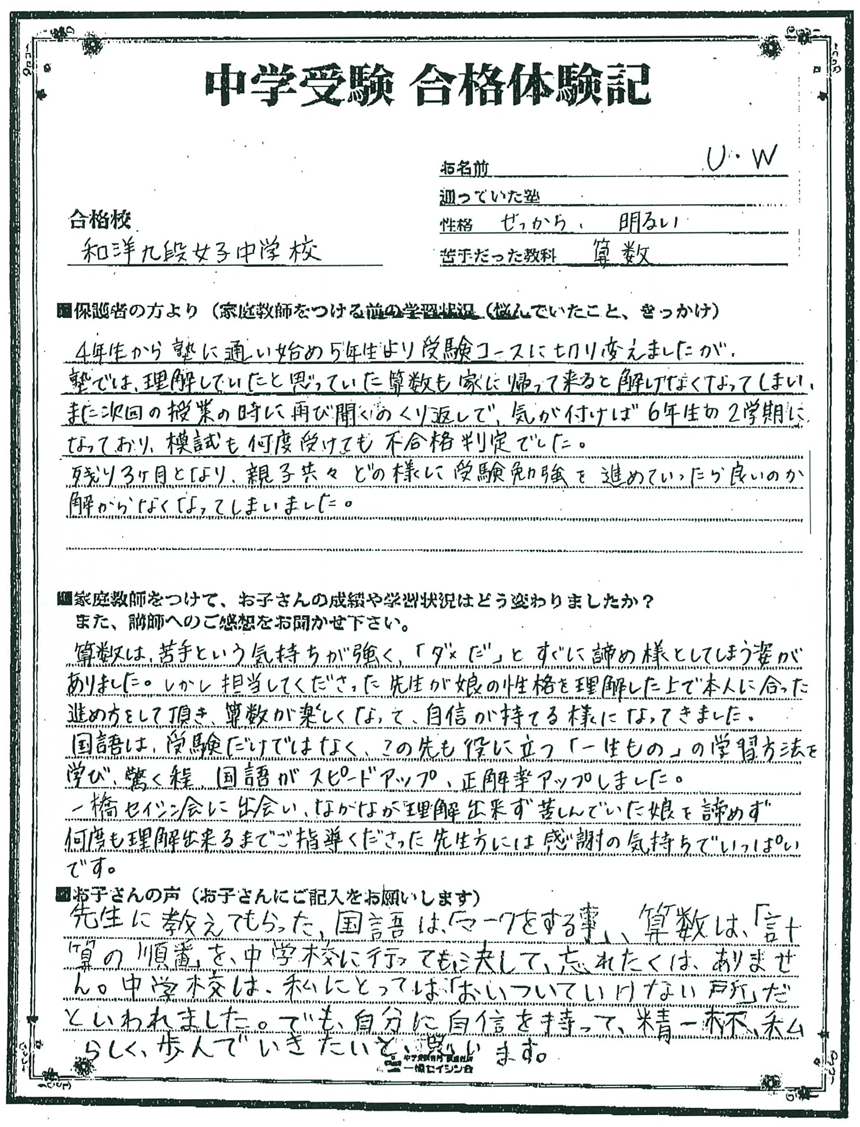 中学受験 合格体験記
お名前 U・W
通っていた塾
合格校
性格 せっかち、明るい
和洋九段女子中学校
苦手だった教科 算数
■保護者の方より（家庭教師をつける前の学習状況（悩んでいたこと、きっかけ）
4年生から塾に通い始め5年生より受験コースに切り変えましたが、
塾では、理解していたと思っていた算数も家に帰って来ると解けなくなってしまい、
また次回の授業の時に再び聞くのくり返しで、気が付けば6年生の2学期に
なっており、模試も何度受けても不合格判定でした。
残り3ヶ月となり、親子共々どの様に受験勉強を進めていったら良いのか
解からなくなってしまいました。
■家庭教師をつけて、お子さんの成績や学習状況はどう変わりましたか？
また、講師へのご感想をお聞かせ下さい。
算数は、苦手という気持ちが強く、「ダメだ」とすぐに諦め様としてしまう姿が
ありました。しかし担当してくださった先生が娘の性格を理解した上で本人に合った
進め方をして頂き、算数が楽しくなって、自信が持てる様になってきました。
国語は、受験だけではなく、この先も役に立つ「一生もの」の学習方法を
学び、驚く程、国語がスピードアップ、正解率アップしました。
一橋セイシン会に出会い、なかなか理解出来ず苦しんでいた娘を諦めず
何度も理解出来るまでご指導くださった先生方には感謝の気持ちでいっぱい
です。
■お子さんの声（お子さんにご記入をお願いします）
先生に教えてもらった、国語は、「マークをする事」、算数は、「計
算の順番」を、中学校に行っても、決して、忘れたくは、ありませ
ん。中学校は、私にとっては「おいついていけない所」だ
といわれました。でも、自分に自信を持って、精一杯、私
らしく、歩んでいきたいと、思います。
一橋セイシン会